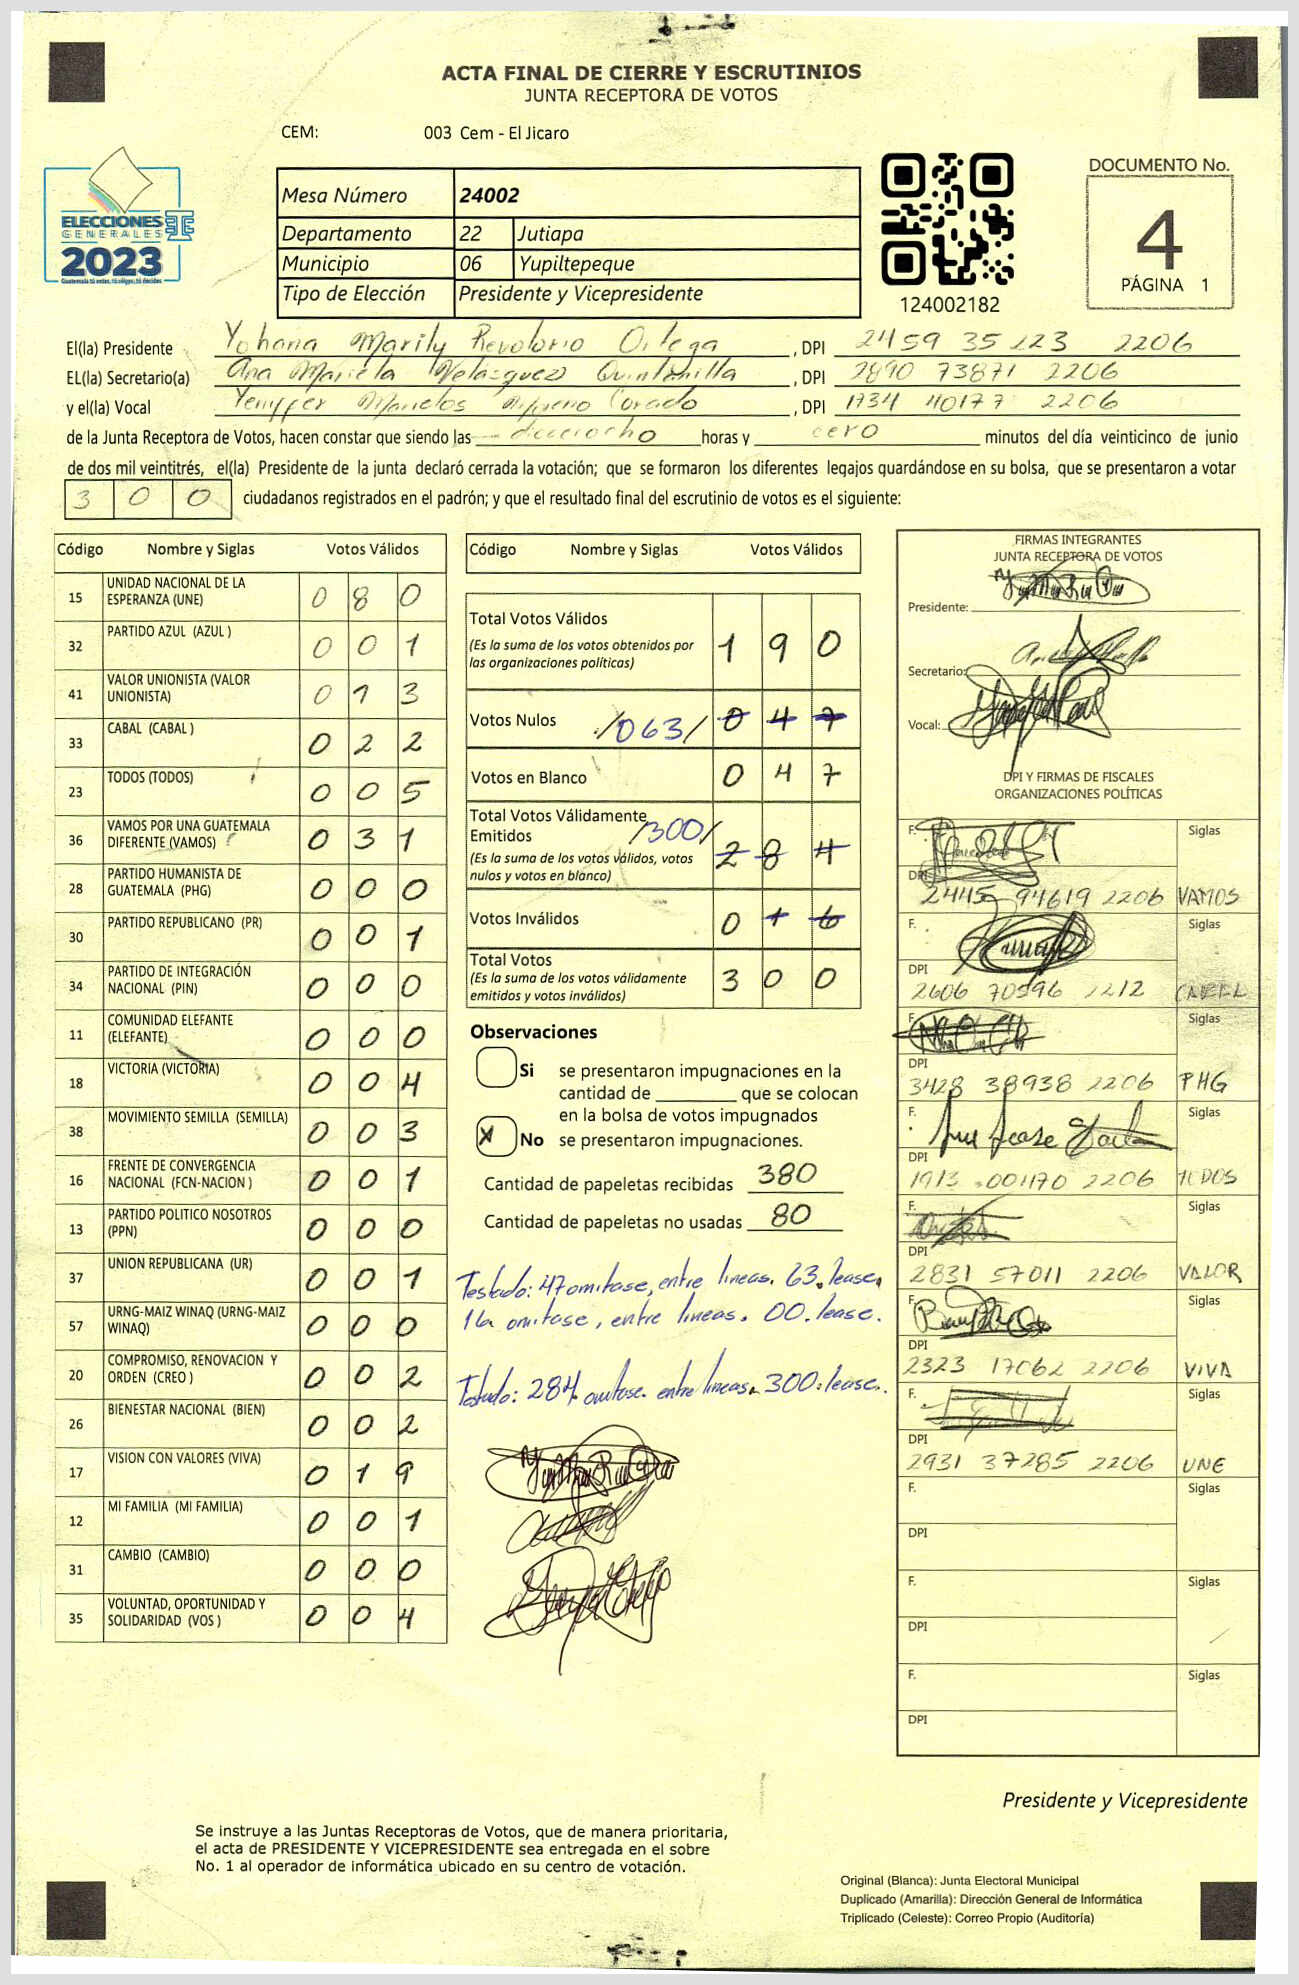 ACTA FINAL DE CIERRE Y ESCRUTINIOS
JUNTA RECEPTORA DE VOTOS
CEM: 003 Cem - El Jicaro
ELECCIONES
GENERALES
2023
Guatemala tú eres, tú eliges, tú decides
Mesa Número 24002
Departamento 22 Jutiapa
Municipio 06 Yupiltepeque
Tipo de Elección Presidente y Vicepresidente
124002182
DOCUMENTO No.
4
PÁGINA 1
El(la) Presidente Yohana Marily Revolorio Ortega , DPI 2459 35123 2206
EL(la) Secretario(a) Ana Mariela Velasquez Quintanilla , DPI 2890 73871 2206
y el(la) Vocal Yeniffer Moreno Corado , DPI 1734 40177 2206
de la Junta Receptora de Votos, hacen constar que siendo las dieciocho horas y cero minutos del día veinticinco de junio
de dos mil veintitrés, el(la) Presidente de la junta declaró cerrada la votación; que se formaron los diferentes legajos guardándose en su bolsa, que se presentaron a votar
3 0 0 ciudadanos registrados en el padrón; y que el resultado final del escrutinio de votos es el siguiente:
Código Nombre y Siglas Votos Válidos
15 UNIDAD NACIONAL DE LA ESPERANZA (UNE) 0 8 0
32 PARTIDO AZUL (AZUL ) 0 0 1
41 VALOR UNIONISTA (VALOR UNIONISTA) 0 1 3
33 CABAL (CABAL ) 0 2 2
23 TODOS (TODOS) 0 0 5
36 VAMOS POR UNA GUATEMALA DIFERENTE (VAMOS) 0 3 1
28 PARTIDO HUMANISTA DE GUATEMALA (PHG) 0 0 0
30 PARTIDO REPUBLICANO (PR) 0 0 1
34 PARTIDO DE INTEGRACIÓN NACIONAL (PIN) 0 0 0
11 COMUNIDAD ELEFANTE (ELEFANTE) 0 0 0
18 VICTORIA (VICTORIA) 0 0 4
38 MOVIMIENTO SEMILLA (SEMILLA) 0 0 3
16 FRENTE DE CONVERGENCIA NACIONAL (FCN-NACION ) 0 0 1
13 PARTIDO POLITICO NOSOTROS (PPN) 0 0 0
37 UNION REPUBLICANA (UR) 0 0 1
57 URNG-MAIZ WINAQ (URNG-MAIZ WINAQ) 0 0 0
20 COMPROMISO, RENOVACION Y ORDEN (CREO ) 0 0 2
26 BIENESTAR NACIONAL (BIEN) 0 0 2
17 VISION CON VALORES (VIVA) 0 1 9
12 MI FAMILIA (MI FAMILIA) 0 0 1
31 CAMBIO (CAMBIO) 0 0 0
35 VOLUNTAD, OPORTUNIDAD Y SOLIDARIDAD (VOS ) 0 0 4
Código Nombre y Siglas Votos Válidos
Total Votos Válidos 1 9 0
(Es la suma de los votos obtenidos por
las organizaciones políticas)
Votos Nulos /063/ 0 4 7
Votos en Blanco 0 4 7
Total Votos Válidamente
Emitidos /300/ 2 8 4
(Es la suma de los votos válidos, votos
nulos y votos en blanco)
Votos Inválidos 0 1 6
Total Votos 3 0 0
(Es la suma de los votos válidamente
emitidos y votos inválidos)
Observaciones
Si se presentaron impugnaciones en la
cantidad de ________ que se colocan
en la bolsa de votos impugnados
X No se presentaron impugnaciones.
Cantidad de papeletas recibidas 380
Cantidad de papeletas no usadas 80
Testado: 47 omitase, entre lineas. 63. lease.
16 omitase, entre lineas. 00. lease.
Testado: 284 omitase. entre lineas. 300. lease.
FIRMAS INTEGRANTES
JUNTA RECEPTORA DE VOTOS
Presidente:
Secretario:
Vocal:
DPI Y FIRMAS DE FISCALES
ORGANIZACIONES POLÍTICAS
F. Siglas
DPI 2445 94619 2206 VAMOS
F. Siglas
DPI 2606 70596 2212 CABAL
F. Siglas
DPI 3428 38938 2206 PHG
F. Siglas
DPI 1913 001170 2206 TODOS
F. Siglas
DPI 2831 57011 2206 VALOR
F. Siglas
DPI 2323 17062 2206 VIVA
F. Siglas
DPI 2931 37285 2206 UNE
F. Siglas
DPI
F. Siglas
DPI
F. Siglas
DPI
Presidente y Vicepresidente
Se instruye a las Juntas Receptoras de Votos, que de manera prioritaria,
el acta de PRESIDENTE Y VICEPRESIDENTE sea entregada en el sobre
No. 1 al operador de informática ubicado en su centro de votación.
Original (Blanca): Junta Electoral Municipal
Duplicado (Amarilla): Dirección General de Informática
Triplicado (Celeste): Correo Propio (Auditoría)